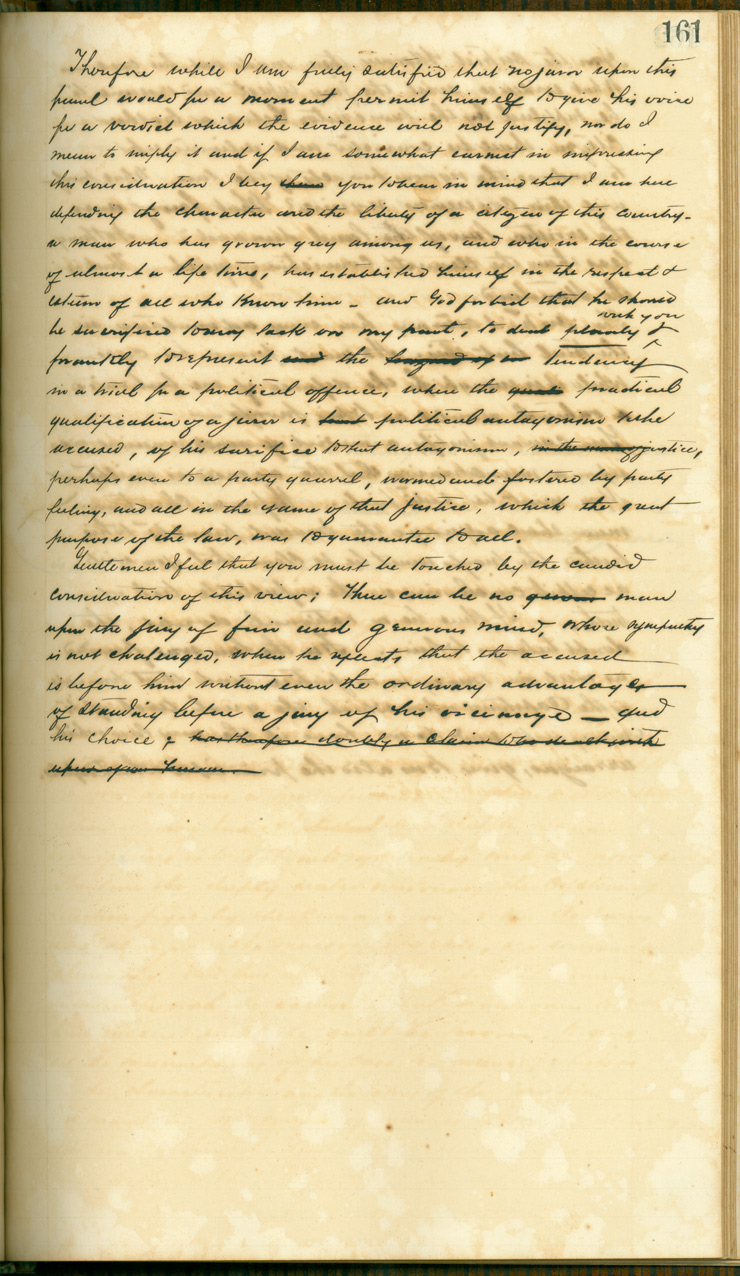 161
Therefore while I am fully satisfied that no juror upon this
panel would for a moment permit himself to give his voice
for a verdict which the evidence will not justify, nor do I
mean to imply it and if I am somewhat earnest in impressing
this consideration I beg you to bear in mind that I am here
defending the character and the liberty of a citizen of this country -
a man who has grown grey among us, and who in the course
of almost a life time, has established himself in the respect &
esteem of all who know him - and God forbid that he should
be sacrificed to any lack on my part, to deal plainly with you &
frankly to represent the tendency
in a trial for a political offence, where the practical
qualification of a juror is political antagonism to the
accused, of his sacrifice to that antagonism, in the name of justice,
perhaps even to a party quarrel, warmed and fostered by party
feeling, and all in the name of that justice, which the great
purpose of the law, was to guarantee to all.
Gentlemen I feel that you must be touched by the candid
consideration of this view; There can be no man
upon the jury of fair and generous mind, whose sympathy
is not challenged, when he reflects that the accused
is before him without even the ordinary advantages
of standing before a jury of his vicinage - and
his choice & has therefore doubly a claim
upon your